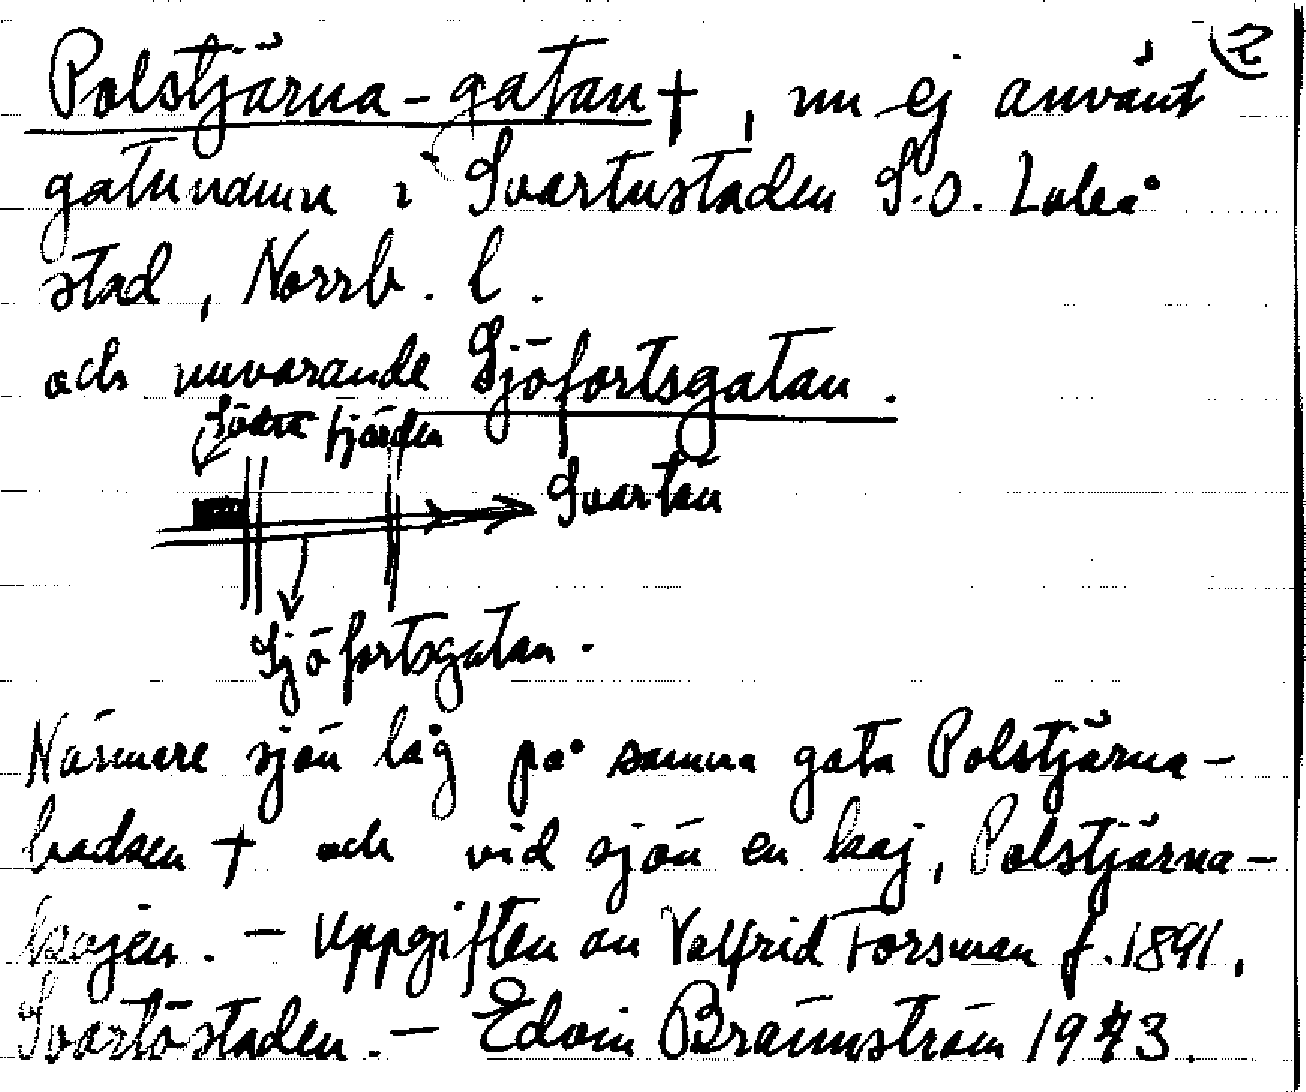 2
Polstjärna-gatan †, nu ej använt
gatunamn i Svartöstaden S.O. Luleå
stad, Norrb. l.
och nuvarande Sjöfortsgatan.
Södra fjärden
Svartön
Sjöfortsgatan.
Närmare sjön låg på samma gata Polstjärna-
badsen † och vid sjön en kaj, Polstjärna-
kajen. – Uppgiften av Valfrid Forsman f. 1891,
Svartöstaden. – Edvin Brännström 1973.